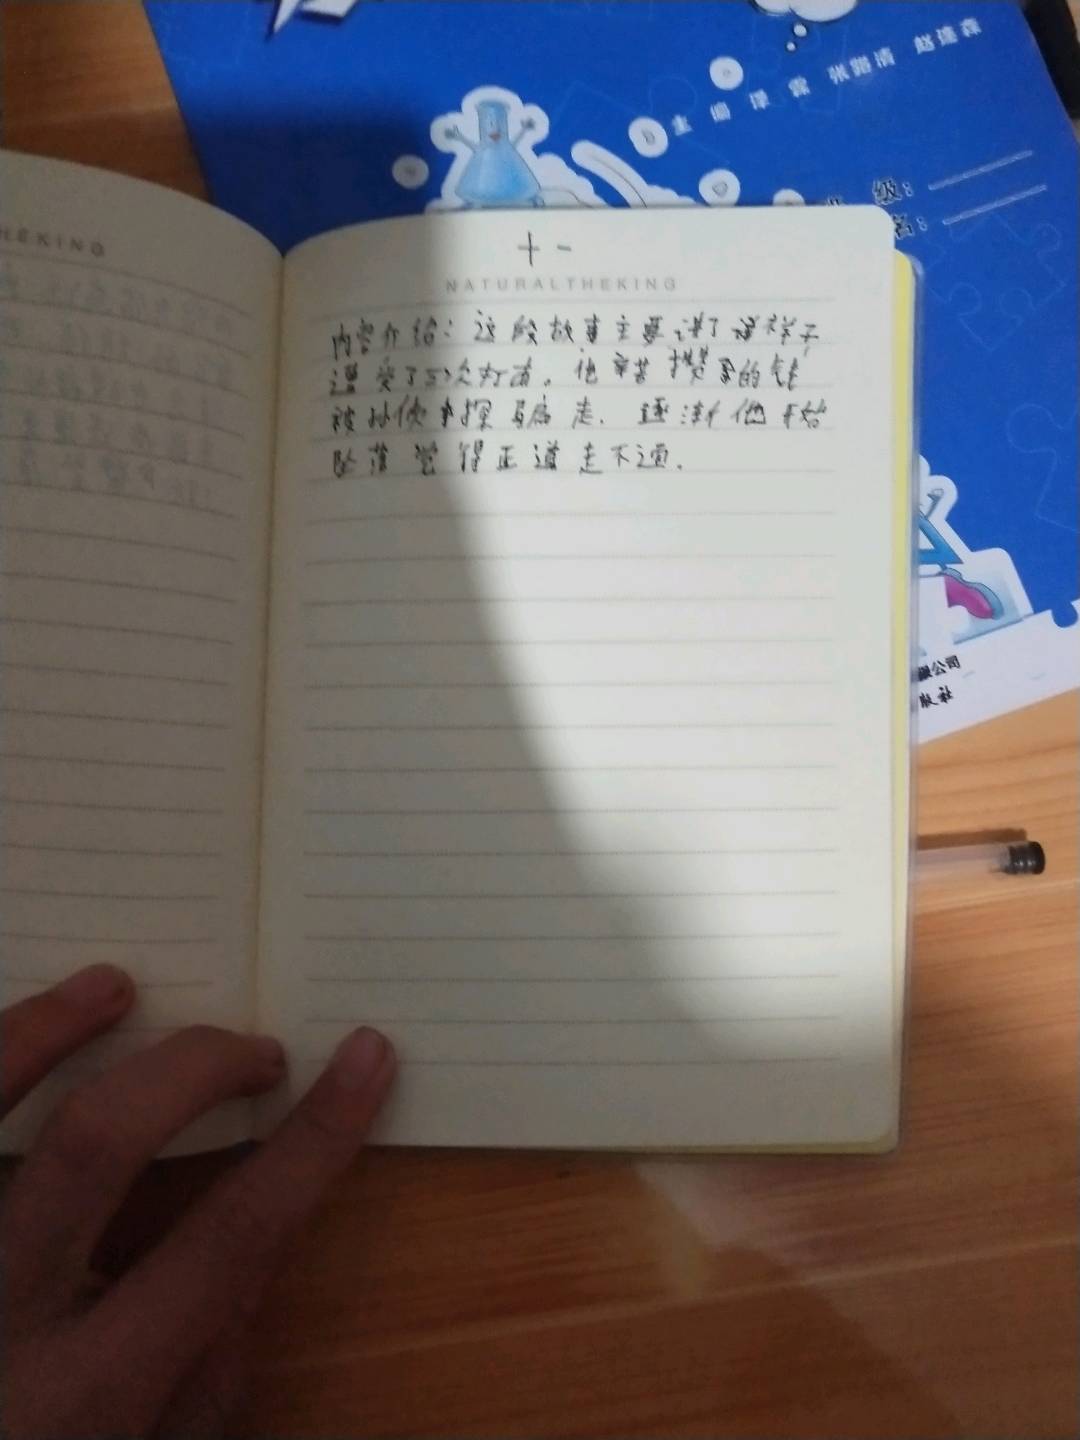 主 编 泽 霖 张踏清 赵逢森
级：
名：
HEKING
十一
NATURALTHEKING
内容介绍：这段故事主要讲了祥子
遭受了三次打击。他辛苦攒的钱
被孙侦探骗走.逐渐他开始
坠落觉得正道走不通.
限公司
版社